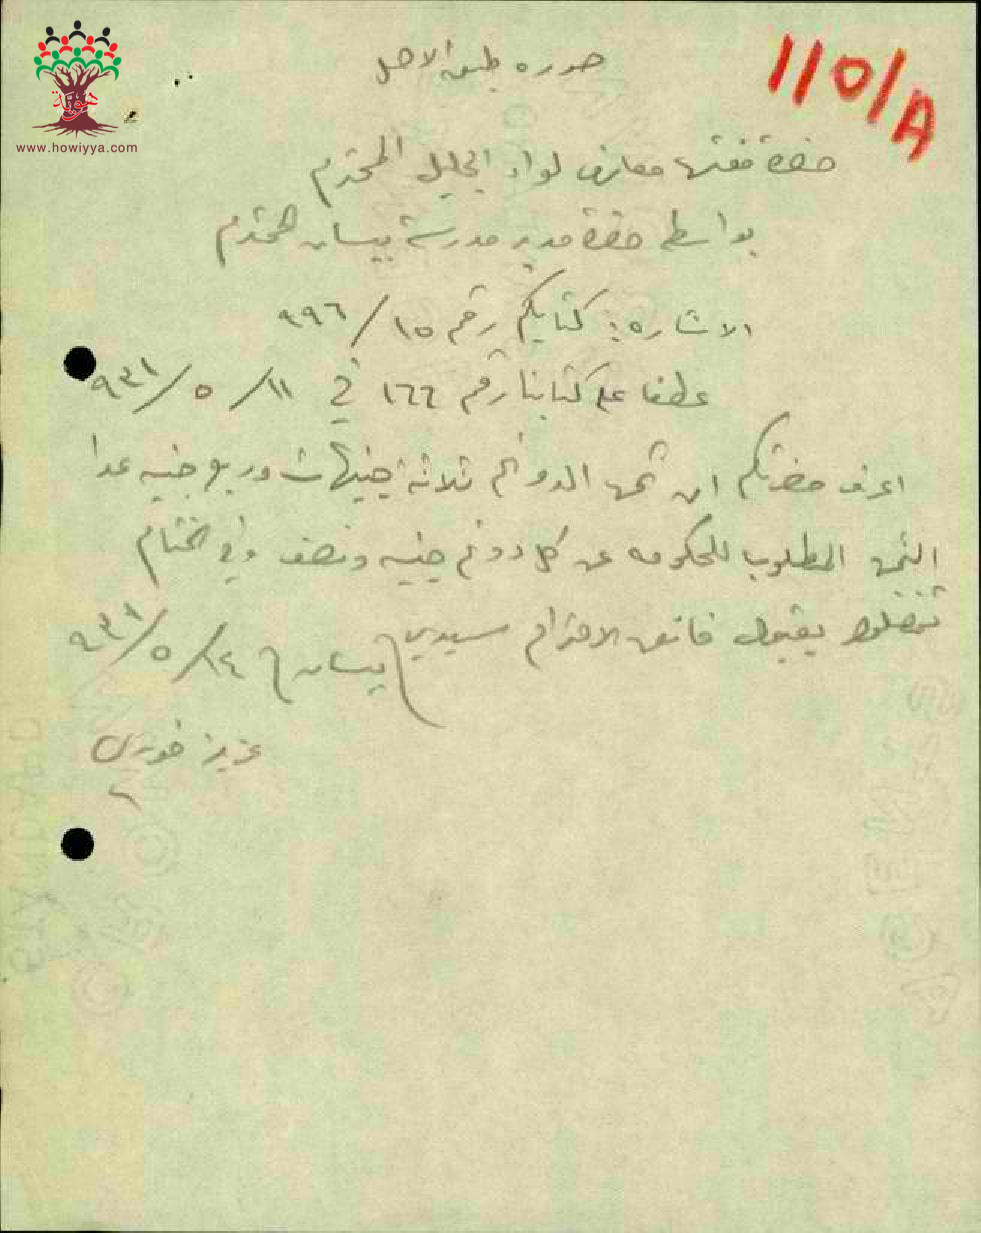 110/A
هوية
www.howiyya.com
صوره طبق الاصل
حضرة مفتش معارف لواء الجليل المحترم
بواسطة حضرة مدير مدرسة بيسان المحترم
الاشاره: كتابكم رقم ١٥/٩٩٦
عطفا على كتابنا رقم ١٦٦ في ١١/٥/٩٣١
اعرف حضرتكم ان ثمن الدونم ثلاثة جنيهات وربع جنيه عدا
الثمن المطلوب للحكومه عن كل دونم جنيه ونصف وفي الختام
تفضلوا بقبول فائق الاحترام سيدي
بيسان ١٤/٥/٩٣١
عزيز خوري